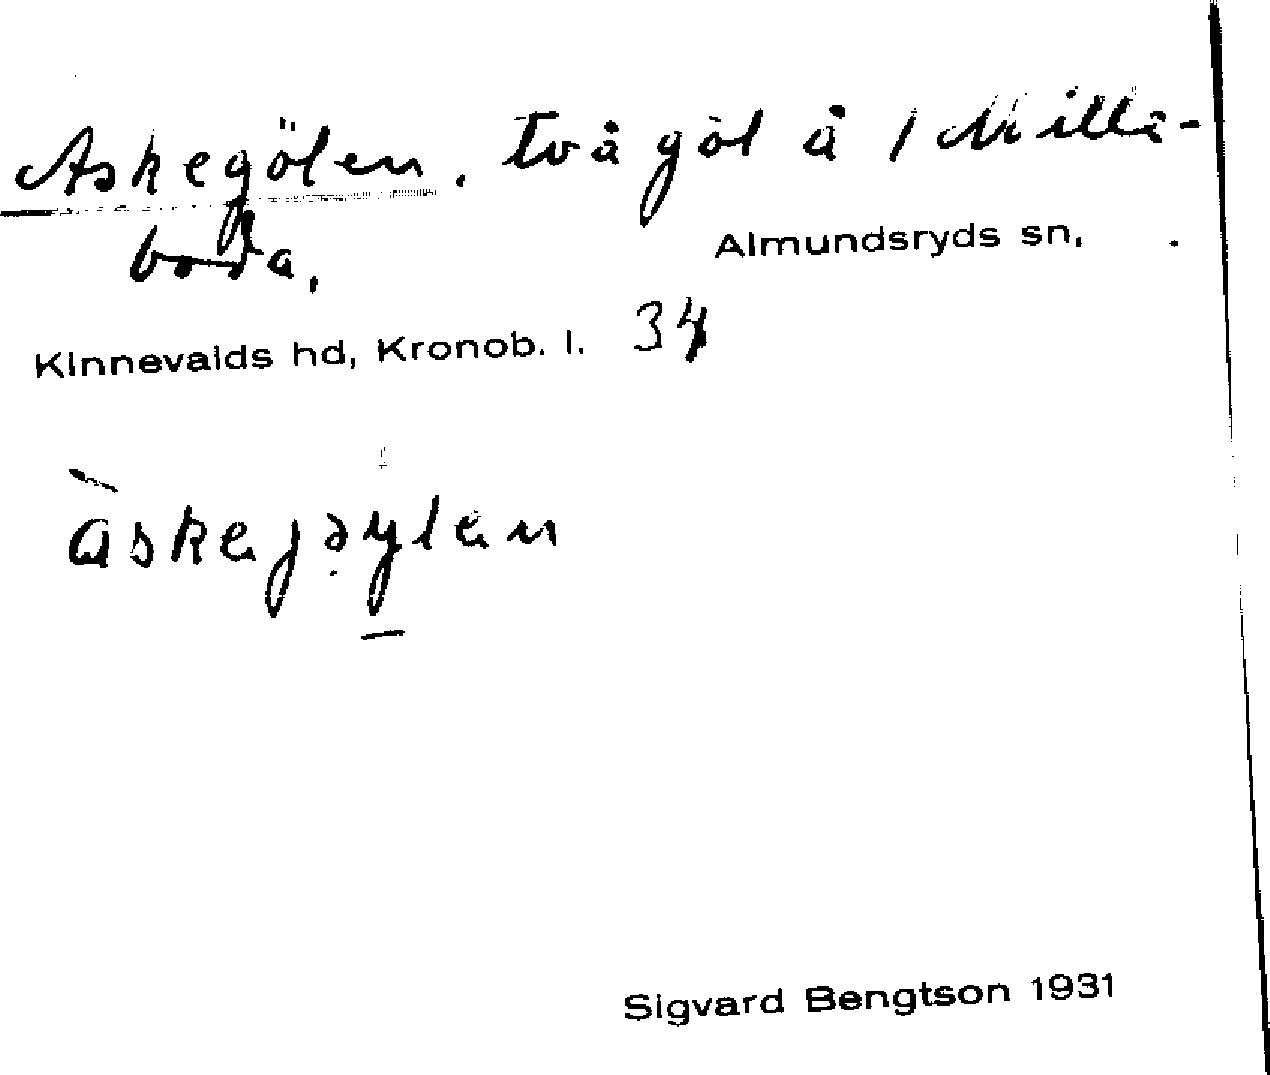 Askegölen. två göl å 1 Milla-
boda.
Almundsryds sn,
Kinnevalds hd, Kronob. l. 34
àskejəylen
Sigvard Bengtson 1931